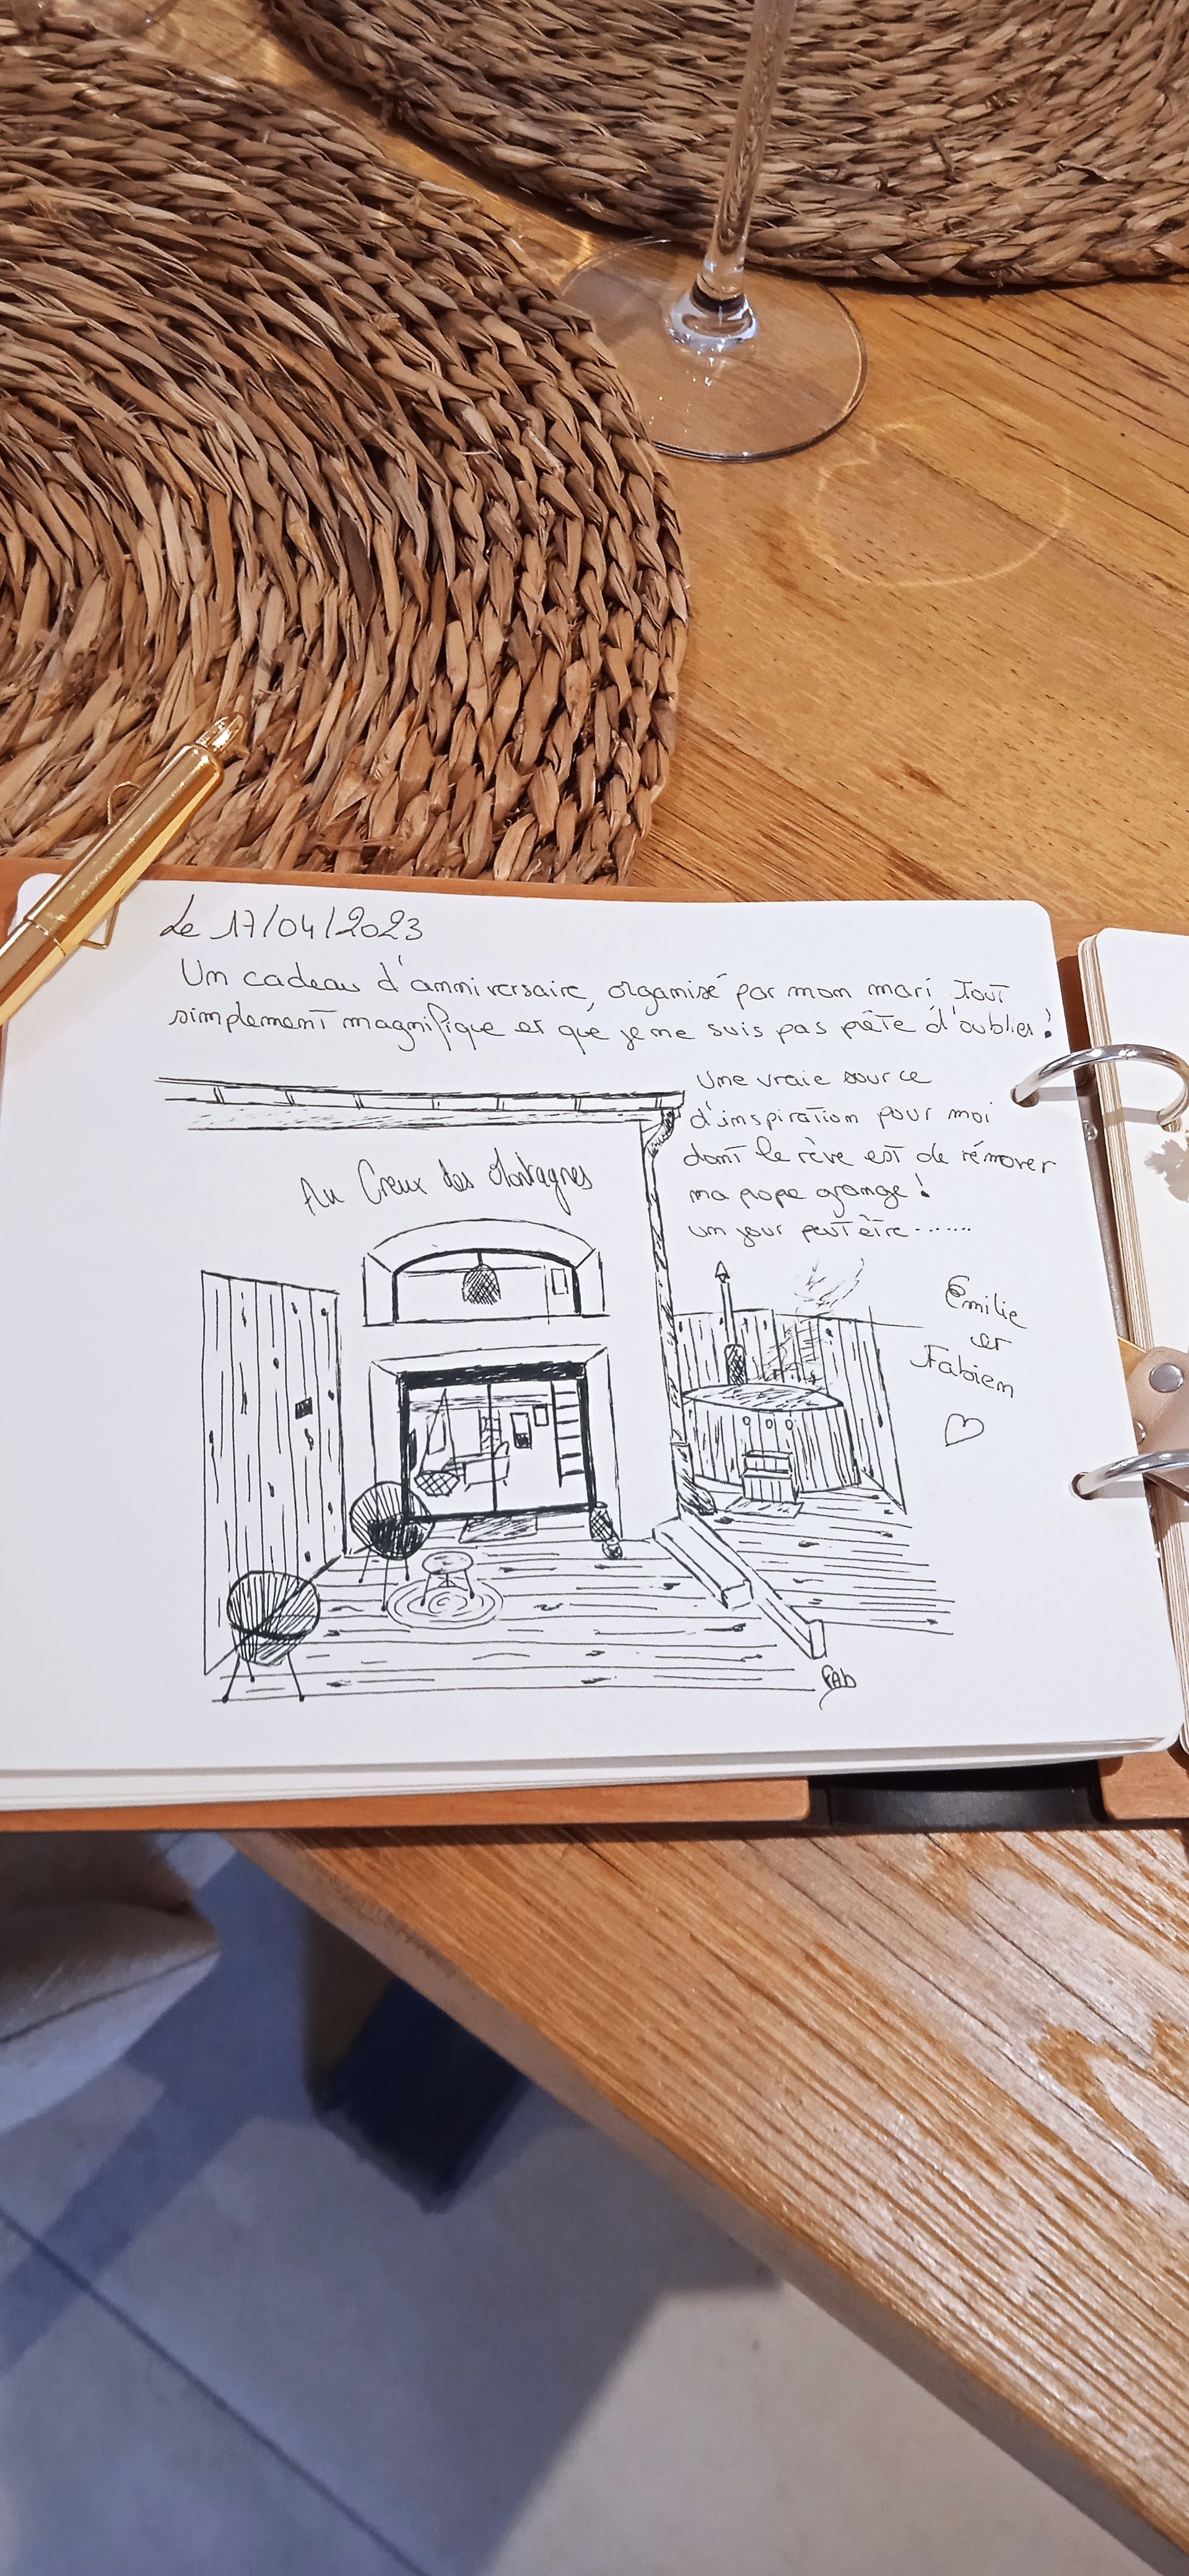 Le 17/04/2023
Un cadeau d'anniversaire, organisé par mon mari. Tout
simplement magnifique et que je ne suis pas prête d'oublier !
Une vraie source
d'inspiration pour moi
dont le rêve est de rénover
ma propre grange !
un jour peut être.......
Au Creux des Montagnes
Emilie
et
Fabien
FAb